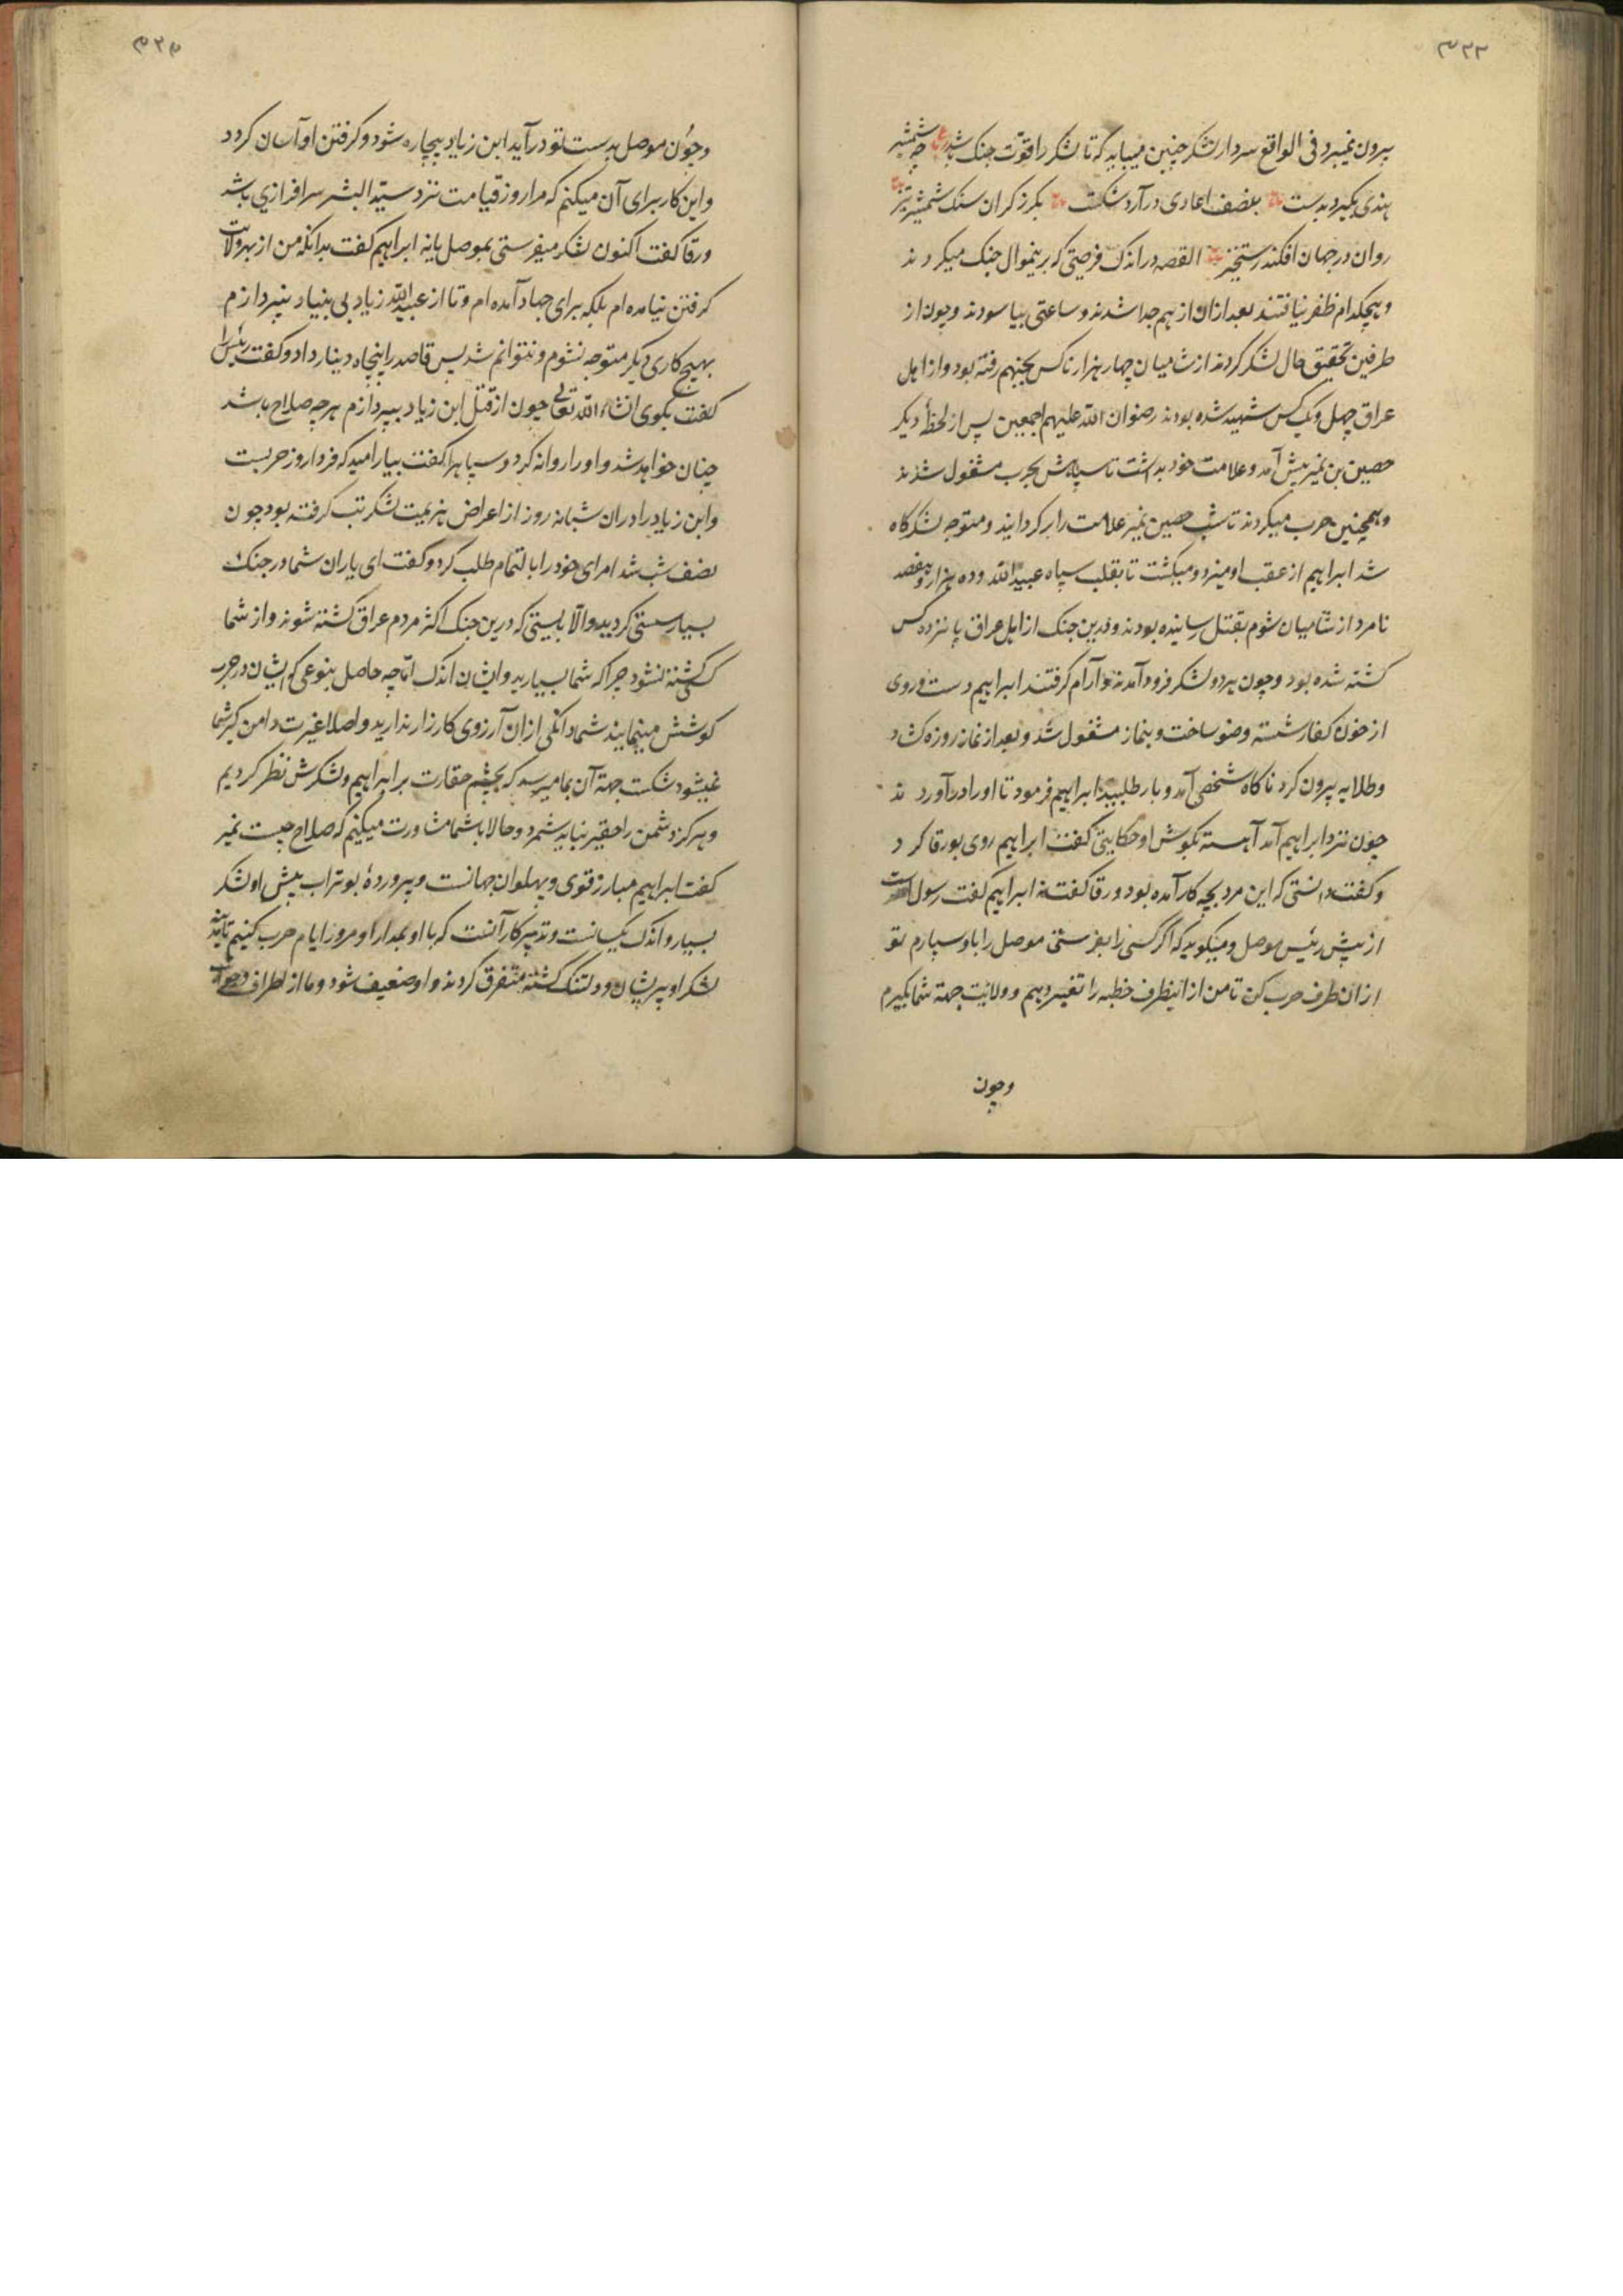 ۳۲۳
بیرون نمیبرد فی الواقع سردار لشکر چنین میباید که تا لشکر را قوّت جنک باشد ع چه شمشیر
هندی بکیرد بدست بصف اعادی درآرد شکست بکرز کران سنک شمشیر تیز
روان در جهان افکند رستخیز القصه در اندک فرصتی که برینموال جنک میکردند
و هیچکدام ظفر نیافتند بعد ازان از هم جدا شدند و ساعتی بیاسودند و چون از
طرفین تحقیق حال لشکر کردند از شامیان چهار هزار ناکس بجهنم رفته بود و از اهل
عراق چهل و یک کس شهید شده بودند رضوان الله علیهم اجمعین پس از لحظهٔ دیکر
حصین بن نمیر پیش آمد و علامت خود بداشت تا سپاهش بحرب مشغول شدند
و همچنین حرب میکردند تا شب حصین نمیر علامت را برکردانید و متوجه لشکرکاه
شد ابراهیم از عقب او میزد و میکشت تا بقلب سپاه عبیدالله و ده هزار و هفصد
نامرد از شامیان شوم بقتل رسانیده بودند و درین جنک از اهل عراق پانزده کس
کشته شده بود و چون هر دو لشکر فرود آمدند و آرام کرفتند ابراهیم دست و روی
از خون کفار شسته وضو ساخت و بنماز مشغول شد و بعد از نماز روزه کشاد
و طلایه بیرون کرد ناکاه شخصی آمد و بار طلبید ابراهیم فرمود تا او را درآوردند
چون نزد ابراهیم آمد آهسته بکوش او حکایتی کفت ابراهیم روی بورقا کرد
و کفت دانستی که این مرد بچه کار آمده بود ورقا کفت نه ابراهیم کفت رسول است
از پیش رئیس موصل و میکوید که اکر کسی را بفرستی موصل را باو سپارم تو
ازان طرف حرب کن تا من از اینطرف خطبه را تغییر دهم و ولایت جهة شما بکیرم
وچون
۳۲۴
وچون موصل بدست تو درآید ابن زیاد بیچاره شود و کرفتن او آسان کردد
و این کار برای آن میکنم که مرا روز قیامت نزد سیّد البشر سرافرازی باشد
ورقا کفت اکنون لشکر میفرستی بموصل یا نه ابراهیم کفت بدانکه من از بهر ولایت
کرفتن نیامده ام بلکه برای جهاد آمده ام و تا از عبیدالله زیاد بی بنیاد نپردازم
بهیچ کاری دیکر متوجه نشوم و نتوانم شد پس قاصد را پنجاه دینار داد و کفت رئیس را
کفت بکوی انشاء الله تعالی چون از قتل ابن زیاد بپردازم هر چه صلاح باشد
چنان خواهد شد و او را روانه کرد و سپاه را کفت بیارامید که فردا روز حربست
و ابن زیاد را دران شبانه روز از اعراض هزیمت لشکر تب کرفته بود چون
نصف شب شد امرای خود را بالتمام طلب کرد و کفت ای یاران شما در جنک
بسیار سستی کردید و الا بایستی که درین جنک اکثر مردم عراق کشته شوند و از شما
کسی کشته نشود چرا که شما بسیارید و ایشان اندک امّا چه حاصل بنوعی که ایشان در حرب
کوشش مینمایند شما دانکی ازان آرزوی کارزار ندارید و اصلا غیرت دامن کیر شما
نمیشود شکست جهة آن بما میرسد که بچشم حقارت بر ابراهیم و لشکرش نظر کردیم
و هرکز دشمن را حقیر نباید شمرد و حالا باشما مشاورت میکنیم که صلاح چیست نمیر
کفت ابراهیم مبارز قوی و پهلوان جهانست و پروردهٔ بوتراب پیش او لشکر
بسیار و اندک یکسانست و تدبیر کار آنست که با او بمدارا و مرور ایام حرب کنیم تا
لشکر او پریشان و دلتنک کشته متفرق کردند و او ضعیف شود و ما از اطراف